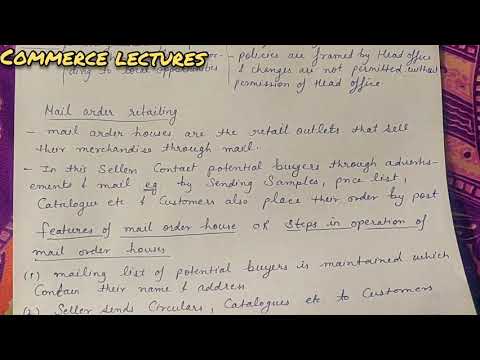 COMMERCE LECTURES
ding to local opportunities
- policies are framed by Head office
& changes are not permitted without
permission of Head office
Mail order retailing
- mail order houses are the retail outlets that sell
their merchandise through mail.
- In this Seller Contact potential buyers through advertis-
ements & mail eg by Sending Samples, price list,
Catalogue etc & Customers also place their order by post
features of mail order house or Steps in operation of
mail order houses
(1) mailing list of potential buyers is maintained which
Contain their name & address
(2) Seller sends Circulars, Catalogues etc to Customers